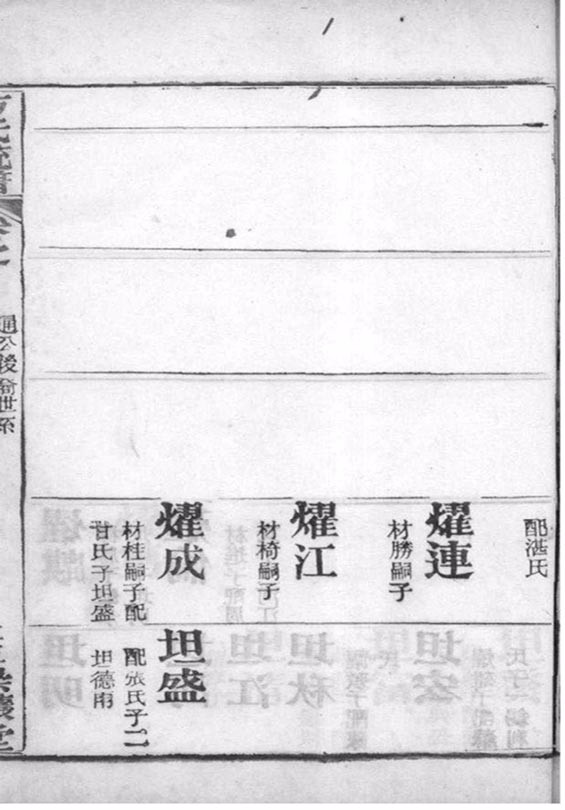 配湛氏
燿連
材勝嗣子
燿江
材椅嗣子
燿成
材桂嗣子配
甘氏子坦盛
坦盛
配張氏子二
坦德南
通公後裔世系